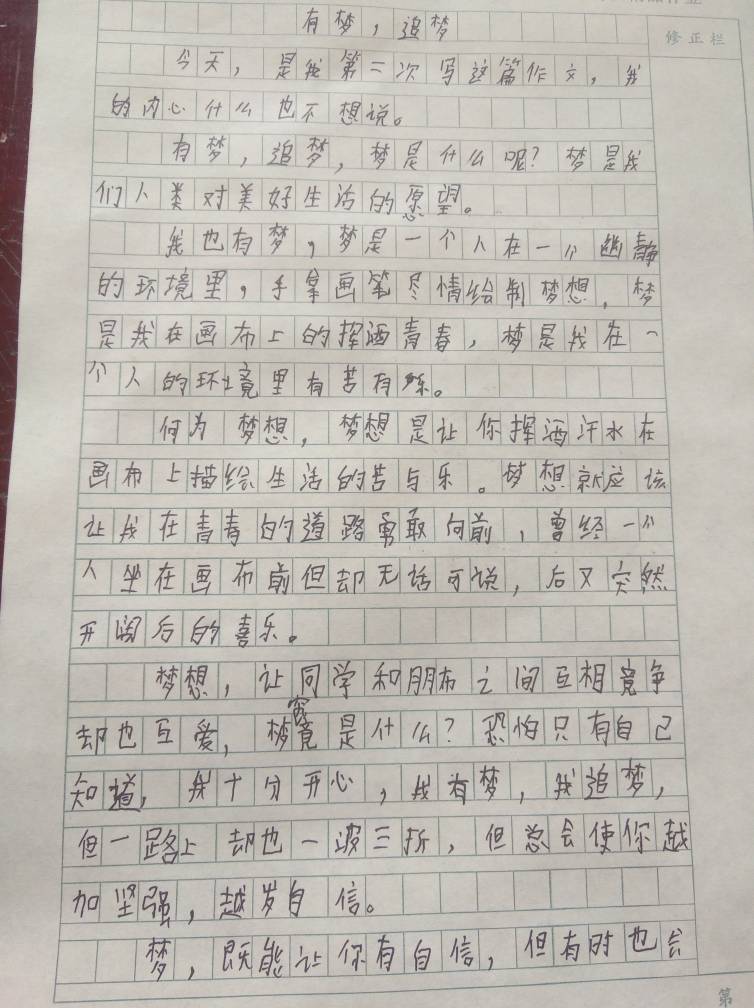 有梦，追梦
修正栏
今天，是我第二次写这篇作文，我
的内心什么也不想说。
有梦，追梦，梦是什么呢？梦是我
们人类对美好生活的愿望。
我也有梦，梦是一个人在一个幽静
的环境里，手拿画笔尽情绘制梦想，梦
是我在画布上的挥洒青春，梦是我在一
个人的环境里有苦有乐。
何为梦想，梦想是让你挥洒汗水在
画布上描绘生活的苦与乐。梦想就应该
让我在青春的道路勇敢向前，曾经一个
人坐在画布前但却无话可说，后又突然
开阔后的喜乐。
梦想，让同学和朋友之间互相竞争
却也互爱，梦究竟是什么？恐怕只有自己
知道，我十分开心，我有梦，我追梦，
但一路上却也一波三折，但总会使你越
加坚强，越发自信。
梦，既能让你有自信，但有时也会
第